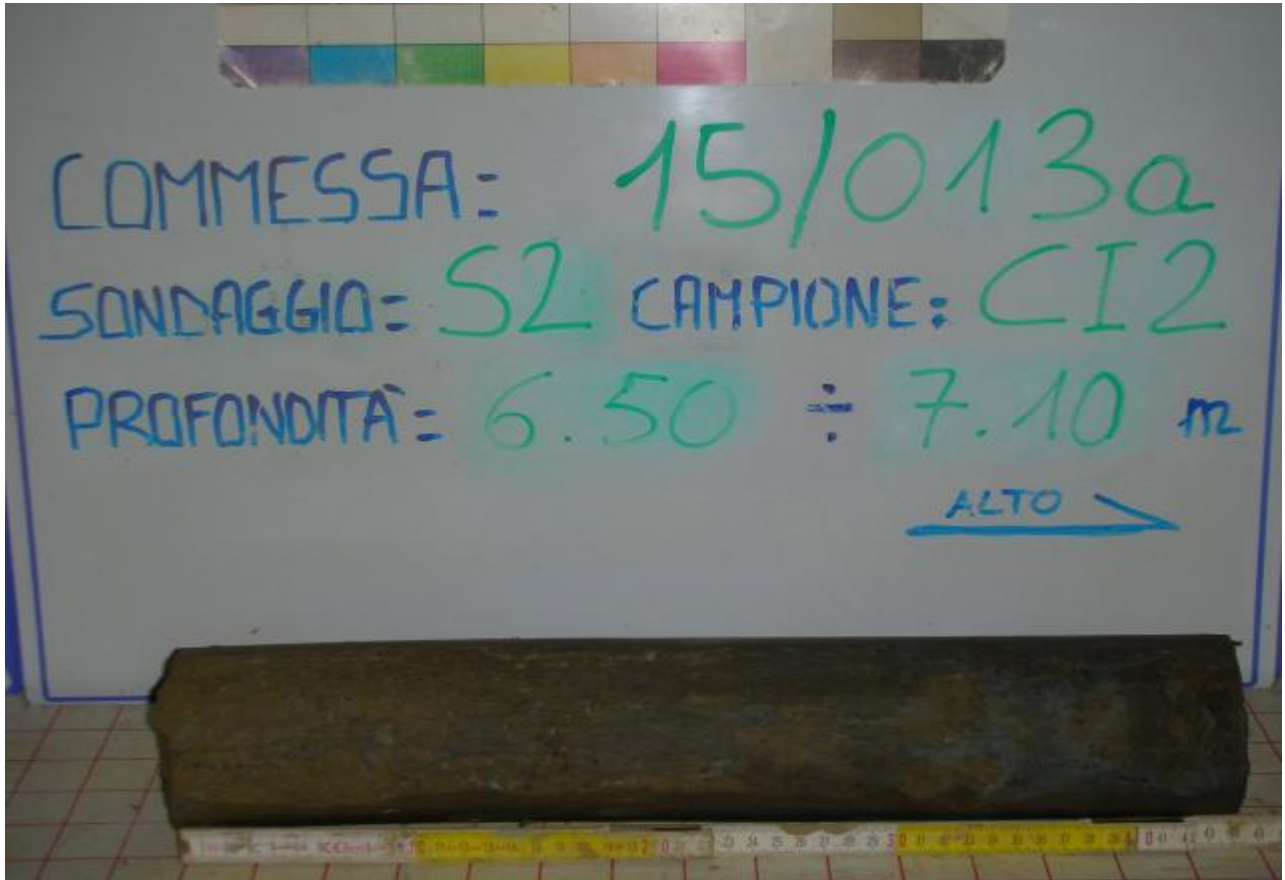 COMMESSA: 15/013a
SONDAGGIO: S2 CAMPIONE: CI2
PROFONDITÀ: 6.50 ÷ 7.10 m
ALTO